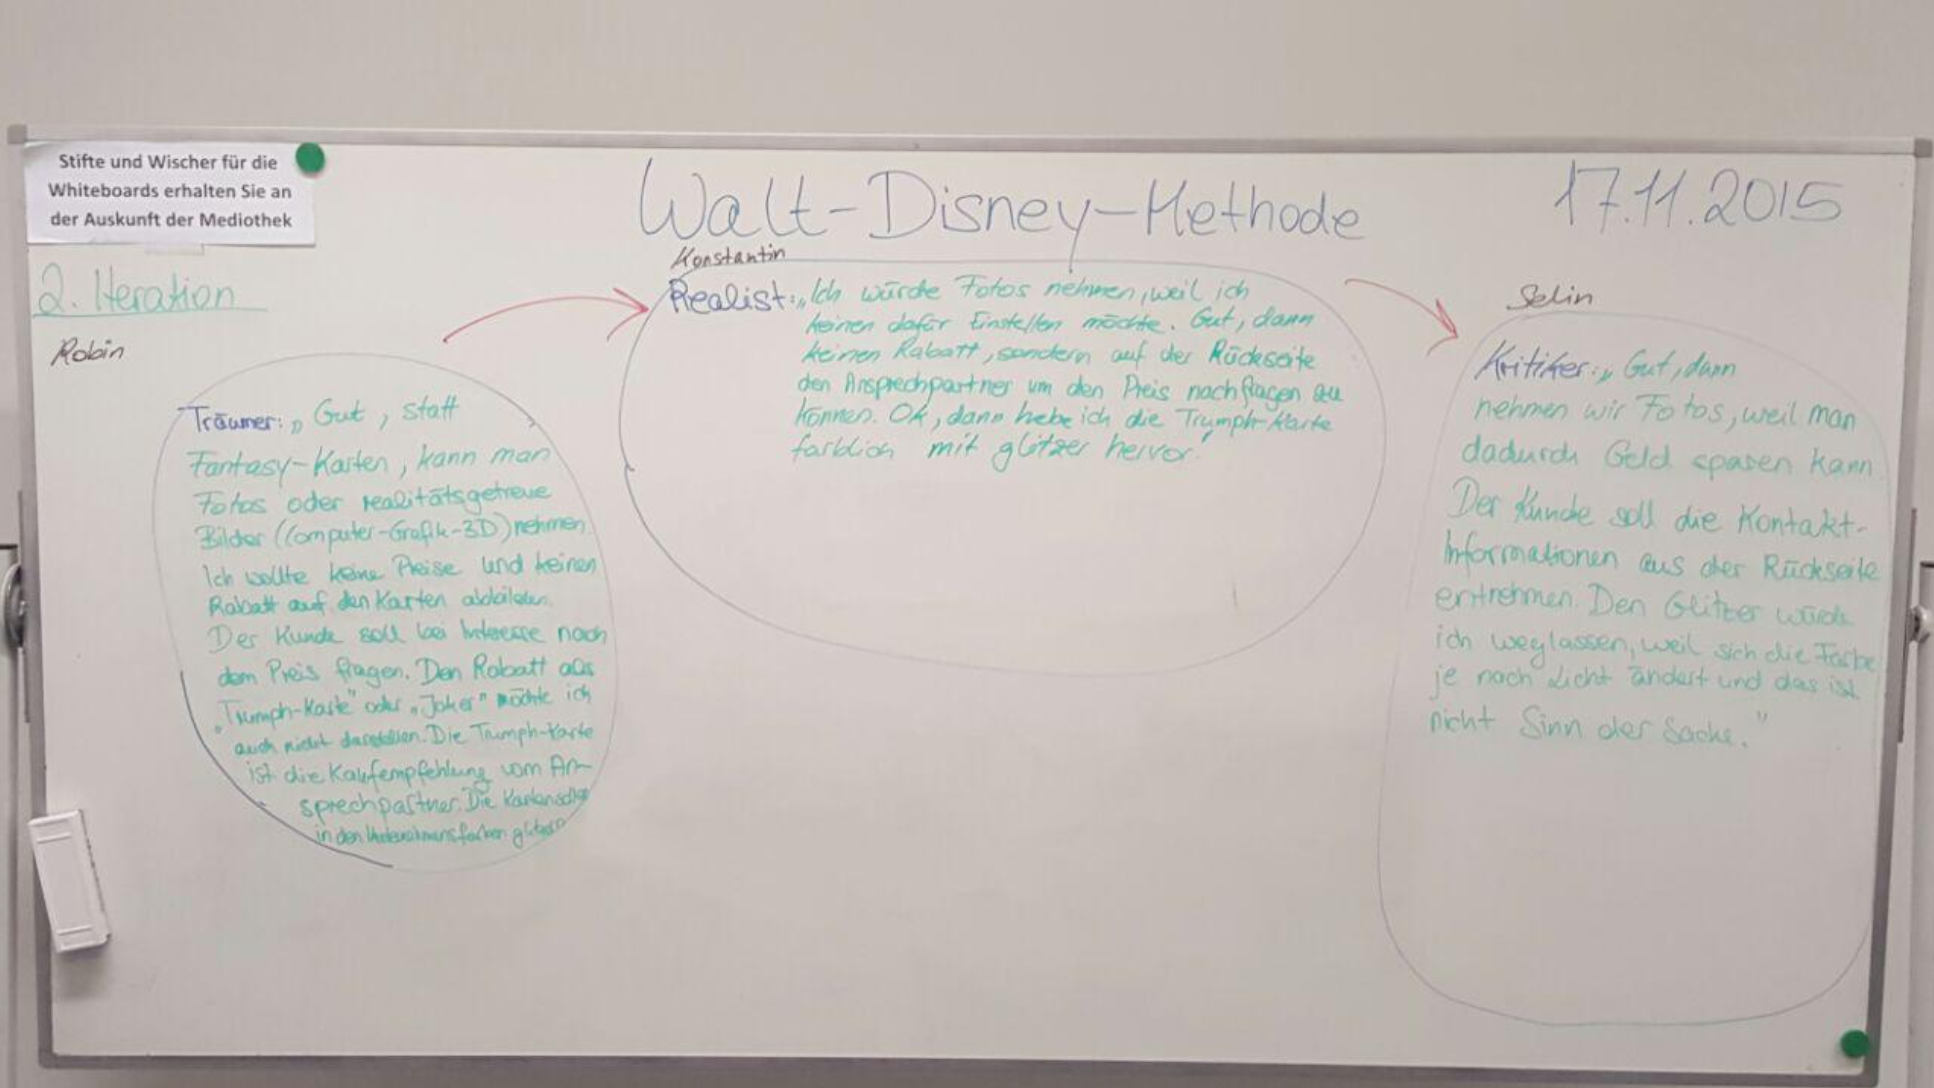 Stifte und Wischer für die
Whiteboards erhalten Sie an
der Auskunft der Mediothek
Walt-Disney-Methode
17.11.2015
2. Iteration
Robin
Träumer: „Gut, statt
Fantasy-Karten, kann man
Fotos oder realitätsgetreue
Bilder (Computer-Grafik-3D) nehmen.
Ich wollte keine Preise und keinen
Rabatt auf den Karten abbilden.
Der Kunde soll bei Interesse nach
dem Preis fragen. Den Rabatt als
„Trumph-Karte" oder „Joker" möchte ich
auch nicht darstellen. Die Trumph-Karte
ist die Kaufempfehlung vom An-
sprechpartner. Die Karten
in den Unternehmensfarben
Konstantin
Realist: „Ich würde Fotos nehmen, weil ich
keinen dafür Einstellen möchte. Gut, dann
keinen Rabatt, sondern auf der Rückseite
den Ansprechpartner um den Preis nachfragen zu
können. Ok, dann hebe ich die Trumph-Karte
farblich mit glitzer hervor."
Selin
Kritiker: „Gut, dann
nehmen wir Fotos, weil man
dadurch Geld sparen kann
Der Kunde soll die Kontakt-
Informationen aus der Rückseite
entnehmen. Den Glitzer würde
ich weglassen, weil sich die Farbe
je nach Licht ändert und das ist
nicht Sinn der Sache."